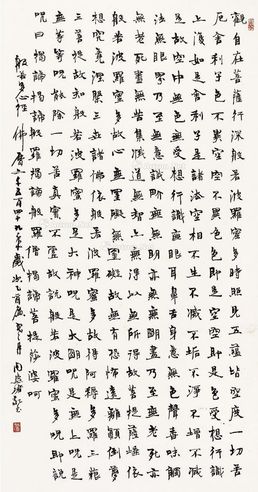 觀自在菩薩行深般若波羅蜜多時照見五蘊皆空度一切苦
厄舍利子色不異空空不異色色即是空空即是色受想行識
亦復如是舍利子是諸法空相不生不滅不垢不淨不增不減
是故空中無色無受想行識無眼耳鼻舌身意無色聲香味觸
法無眼界乃至無意識界無無明亦無無明盡乃至無老死亦
無老死盡無苦集滅道無智亦無得以無所得故菩提薩埵依
般若波羅蜜多故心無罣礙無罣礙故無有恐怖遠離顛倒夢
想究竟涅槃三世諸佛依般若波羅蜜多故得阿耨多羅三藐
三菩提故知般若波羅蜜多是大神呪是大明呪是無上呪是
無等等呪能除一切苦真實不虛故說般若波羅蜜多呪即說
呪曰揭諦揭諦般羅揭諦般羅僧揭諦菩提薩婆呵
般若多心經 佛曆二千五百四十九年歲次乙酉